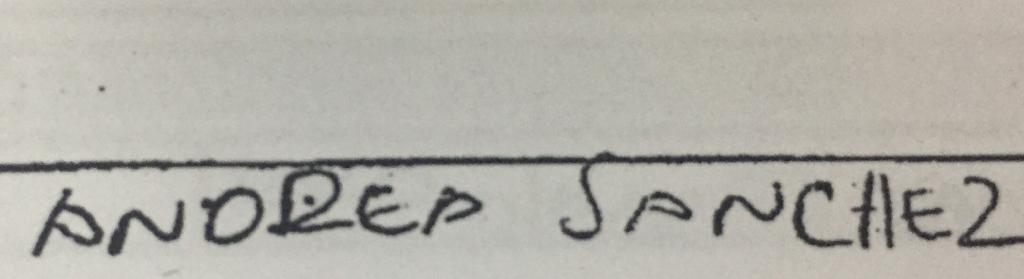 ANDREA SANCHEZ